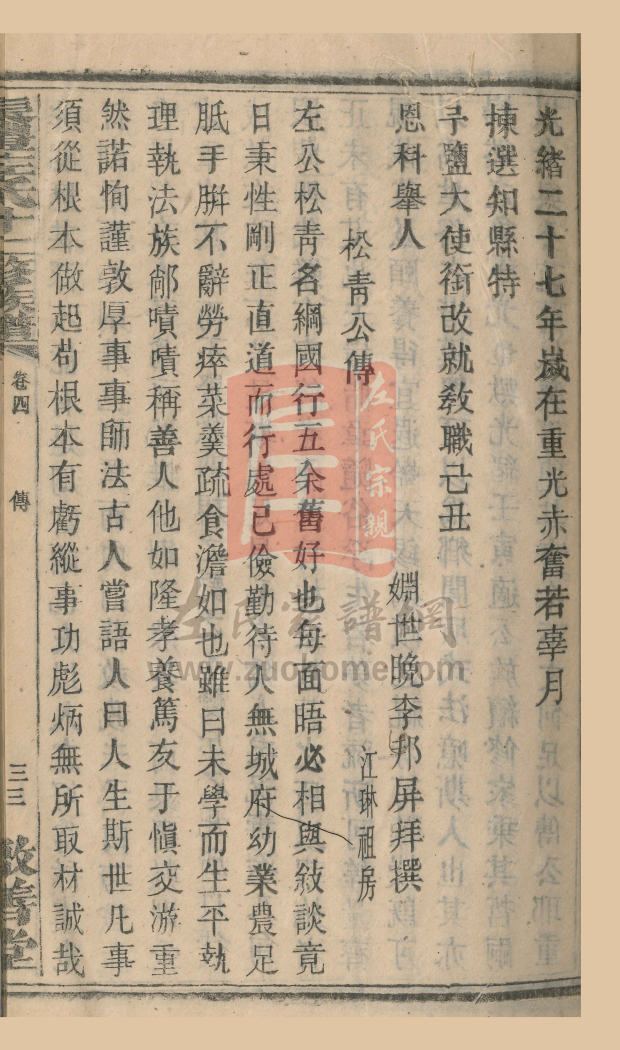 光緒二十七年歲在重光赤奮若辜月
揀選知縣特
予鹽大使銜改就敎職己丑
恩科舉人
婣世晚李邦屏拜撰
松青公傳
江琳祖房
左公松青名綱國行五余舊好也每面晤必相與敍談竟
日秉性剛正直道而行處已儉勤待人無城府幼業農足
胝手胼不辭勞瘁菜羹疏食澹如也雖曰未學而生平執
理執法族鄰嘖嘖稱善人他如隆孝養篤友于愼交游重
然諾恂謹敦厚事事師法古人嘗語人曰人生斯世凡事
須從根本做起茍根本有虧縱事功彪炳無所取材誠哉
卷四
傳
三三
左氏宗親
左氏宗譜網
www.zuozome.com